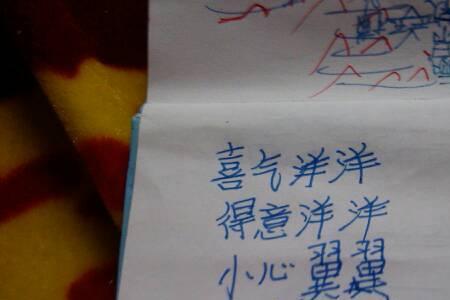 喜气洋洋
得意洋洋
小心翼翼